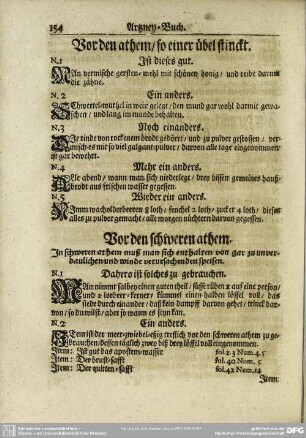 154 Artzney-Buch.
Vor den athem / so einer übel stinckt.
N.1 Ist dieses gut.
MAn vermische gersten-mehl mit schönen honig / und reibe darmit
die zähne.
N. 2 Ein anders.
SChwertel-wurtzel in wein gelegt / den mund gar wohl darmit gewa-
schen / und lang im munde behalten.
N.3 Noch ein anders.
DJe rinde von rockenem brode gedörrt / und zu pulver gestossen / ver-
misch es mir so viel galgant-pulver / darvon alle tage eingenommen /
ist gar bewehrt.
N.4 Mehr ein anders.
ALle abend / wann man sich niederlegt / drey bissen gemeines hauß-
brodt aus frischen wasser gegessen.
N.5 Wieder ein anders.
NImm wacholderbeeren 8 loth / fenchel 2 loth / zucker 4 loth / dieses
alles zu pulver gemacht / alle morgen nüchtern darvon gegessen.
Vor den schweren athem.
In schweren athem muß man sich enthalten von gar zu unver-
daulichen und winde verursachenden speisen.
N.1 Dahero ist solches zu gebrauchen.
MAn nimmt salbey einen guten theil / süsse rüben 2 auf eine person /
und 2 lorbeer-kerner / kümmel einen halben löffel voll / das
siede durch einander / daß sein dampff darvon gehet / trinck dar-
von / so du wilst / aber so warm es seyn kan.
N.2 Ein anders.
ITem ist der meer-zwiebel-essig trefflich vor den schweren athem zu ge-
brauchen / dessen täglich zwey biß drey löffel voll eingenommen.
Item: Ist gut das apostem-wasser fol. 23 Num. 4. 5
Item: Der brust-safft fol. 40 Num. 5
Item: Der quitten-safft fol. 42 Num. 14
Item: